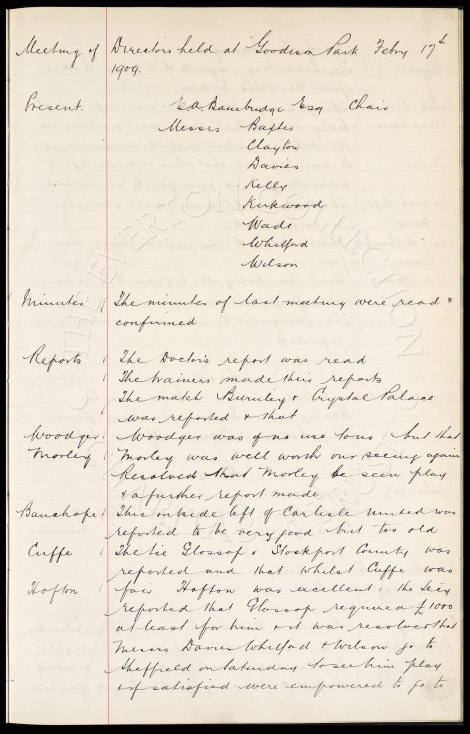 Meeting of Directors held at Goodison Park Febry 17th
1909.
Present. E A Bainbridge Esq Chair
Messrs Baxter
Clayton
Davies
Kelly
Kirkwood
Wade
Whitford
Wilson
Minutes The minutes of last meeting were read &
confirmed
Reports The Doctors report was read
The trainers made their reports
The match Burnley v Crystal Palace
was reported & that
Woodger Woodger was of no use to us, but that
Morley Morley was well worth our seeing again
Resolved that Morley be seen play
& a further report made
Bauchope This outside left of Carlisle United was
reported to be very good but too old
Cuffe The tie Glossop v Stockport County was
reported and that whilst Cuffe was
Hofton fair Hofton was excellent, the Secy
reported that Glossop required £1000
at least for him & it was resolved that
Messrs Davies Whitford & Wilson go to
Sheffield on Saturday to see him play
& if satisfied were empowered to go to
THE EVERTON COLLECTION